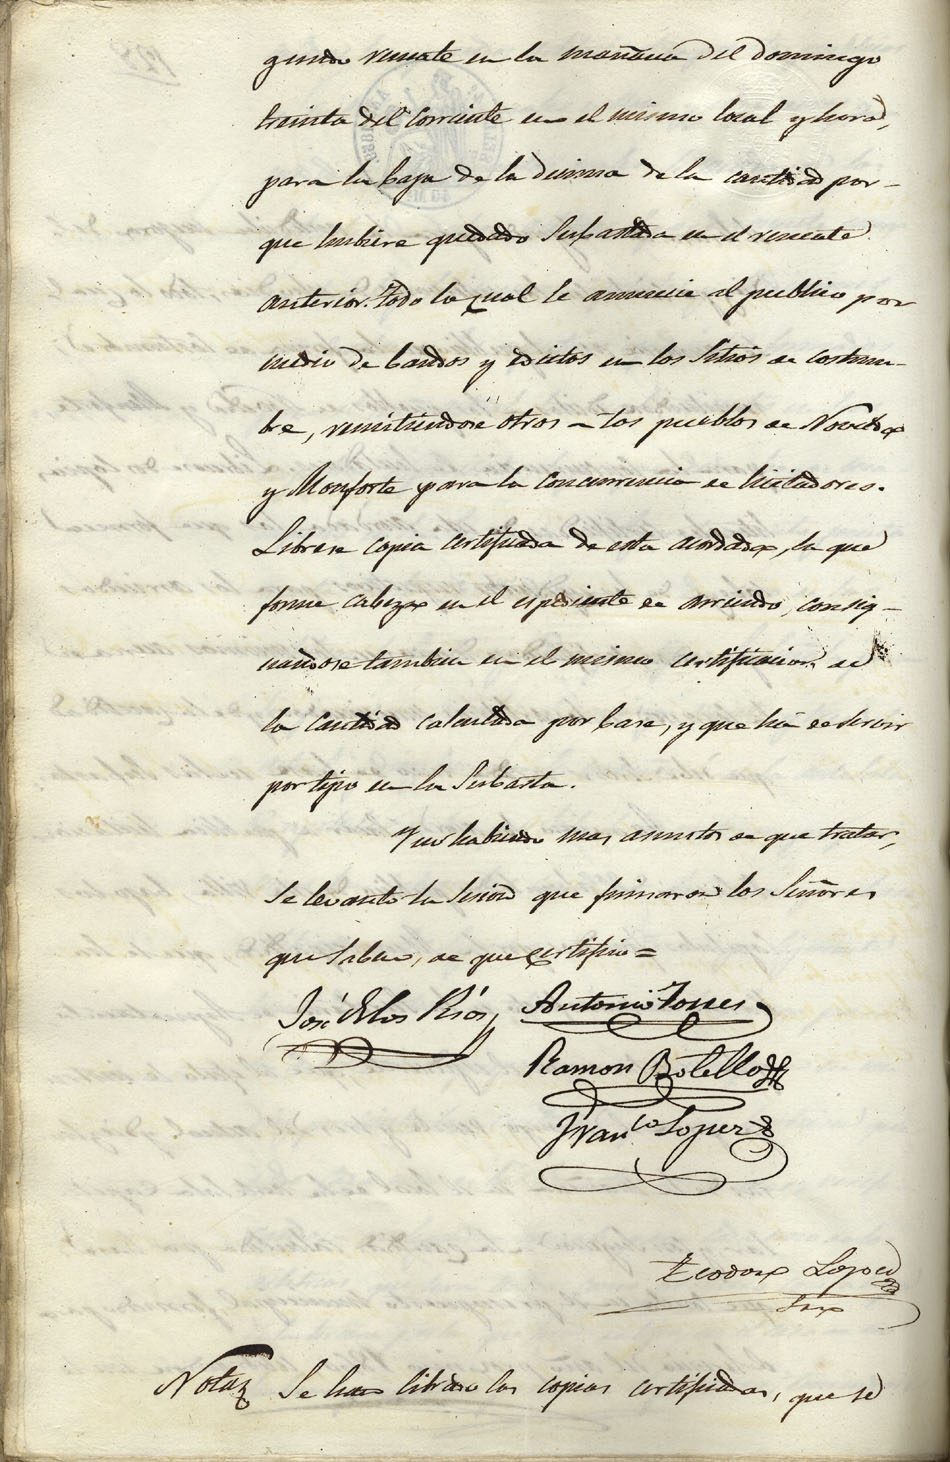 gundo remate en la mañana del domingo
treinta del corriente en el mismo local y hora,
para la baja de la decima de la cantidad por-
que hubiere quedado subastada en el remate
anterior. Todo lo qual se anuncie al publico por
medio de bandos y edictos en los sitios de costum-
bre, remitiendose otros a los pueblos de Novelda
y Monforte para la concurrencia de licitadores.
Librese copia certificada de esta acordada, la que
forme cabeza en el espediente de arriendo, consig-
nandose tambien en el mismo certificacion de
la cantidad calculada por base, y que há de servir
por tipo en la subasta.
Y no habiendo mas asuntos de que tratar,
se levantó la sesion que firmaron los Señores
que saben, de que certifico =
José de los Rios Antonio Torres
Ramon Botella
Franco Lopez
Teodoro Lopez
Srio
Nota Se han librado las copias certificadas, que se